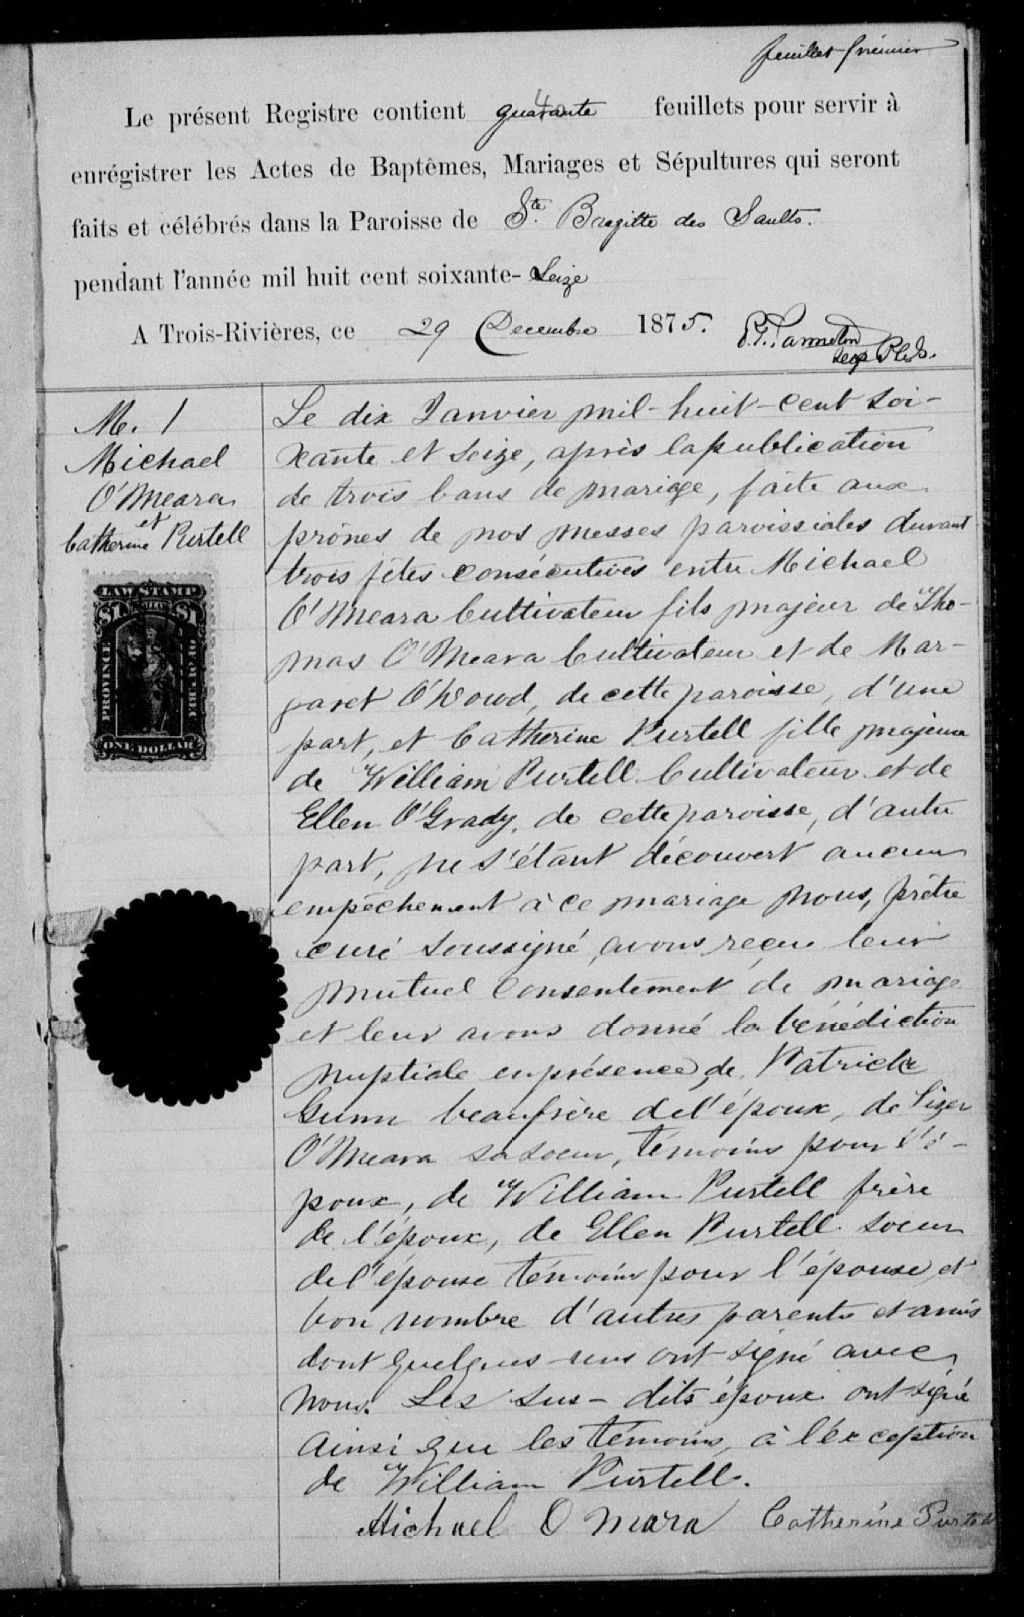 feuillet premier
Le présent Registre contient quarante feuillets pour servir à
enrégistrer les Actes de Baptêmes, Mariages et Sépultures qui seront
faits et célébrés dans la Paroisse de Ste. Bregitte des Saults.
pendant l'année mil huit cent soixante-Seize
A Trois-Rivières, ce 29 Decembre 1875.
M. 1
Michael
O'Meara
et
Catherine Purtell
LAW STAMP
$1 $1
PROVINCE OF QUEBEC
ONE DOLLAR
Le dix Janvier mil-huit-cent soi-
xante et seize, après la publication
de trois bans de mariage, faite aux
prônes de nos messes paroissiales durant
trois fêtes consécutives entre Michael
O'Meara Cultivateur fils majeur de Tho-
mas O'Meara Cultivateur et de Mar-
garet de cette paroisse, d'une
part, et Catherine Purtell fille majeure
de William Purtell Cultivateur et de
Ellen O'Grady, de cette paroisse, d'autre
part, ne s'étant découvert aucun
empêchement à ce mariage nous, prêtre
curé soussigné, avons reçu leur
mutuel consentement de mariage
et leur avons donné la bénédiction
nuptiale en présence, de Patrick
Gunn beaufrère de l'époux, de
O'Meara sa soeur, témoins pour l'é-
poux, de William Purtell frère
de l'époux, de Ellen Purtell soeur
de l'épouse témoins pour l'épouse et
bon nombre d'autres parents et amis
dont quelques-uns ont signé avec
nous. Les sus-dits époux ont signé
ainsi que les témoins, à l'exception
de William Purtell.
Michael O Mara Catherine Purtell